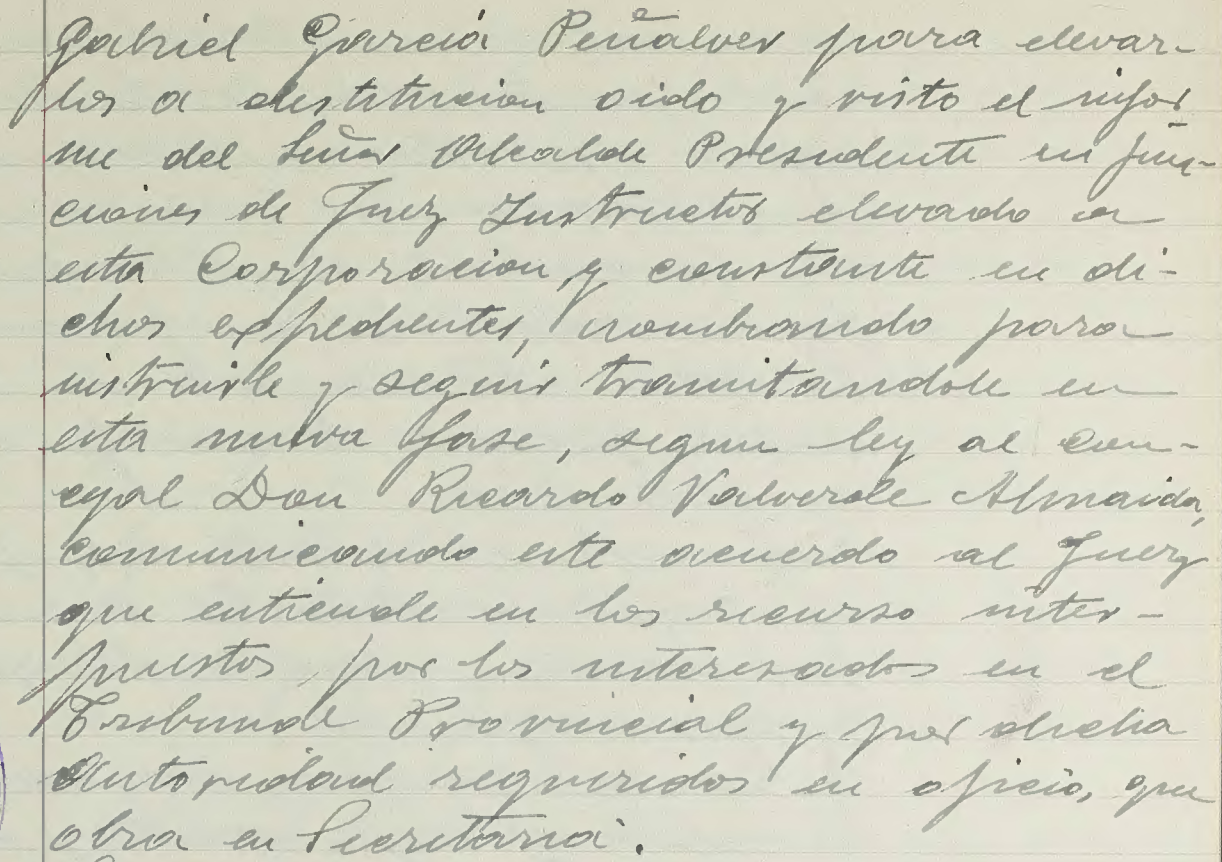 Gabriel García Peñalver para elevar-
los a destitucion oido y visto el infor
me del Señor Alcalde Presidente en fun-
ciones de Juez Instructor elevado a
esta Corporacion y constante en di-
chos expedientes, nombrando para
instruirle y seguir tramitandole en
esta nueva fase, segun ley al con-
cejal Don Ricardo Valverde Almaida,
comunicando este acuerdo al Juez
que entiende en los recurso inter-
puestos, por los interesados en el
Tribunal Provincial y por dicha
Autoridad requeridos en oficio, que
obra en Secretaría.